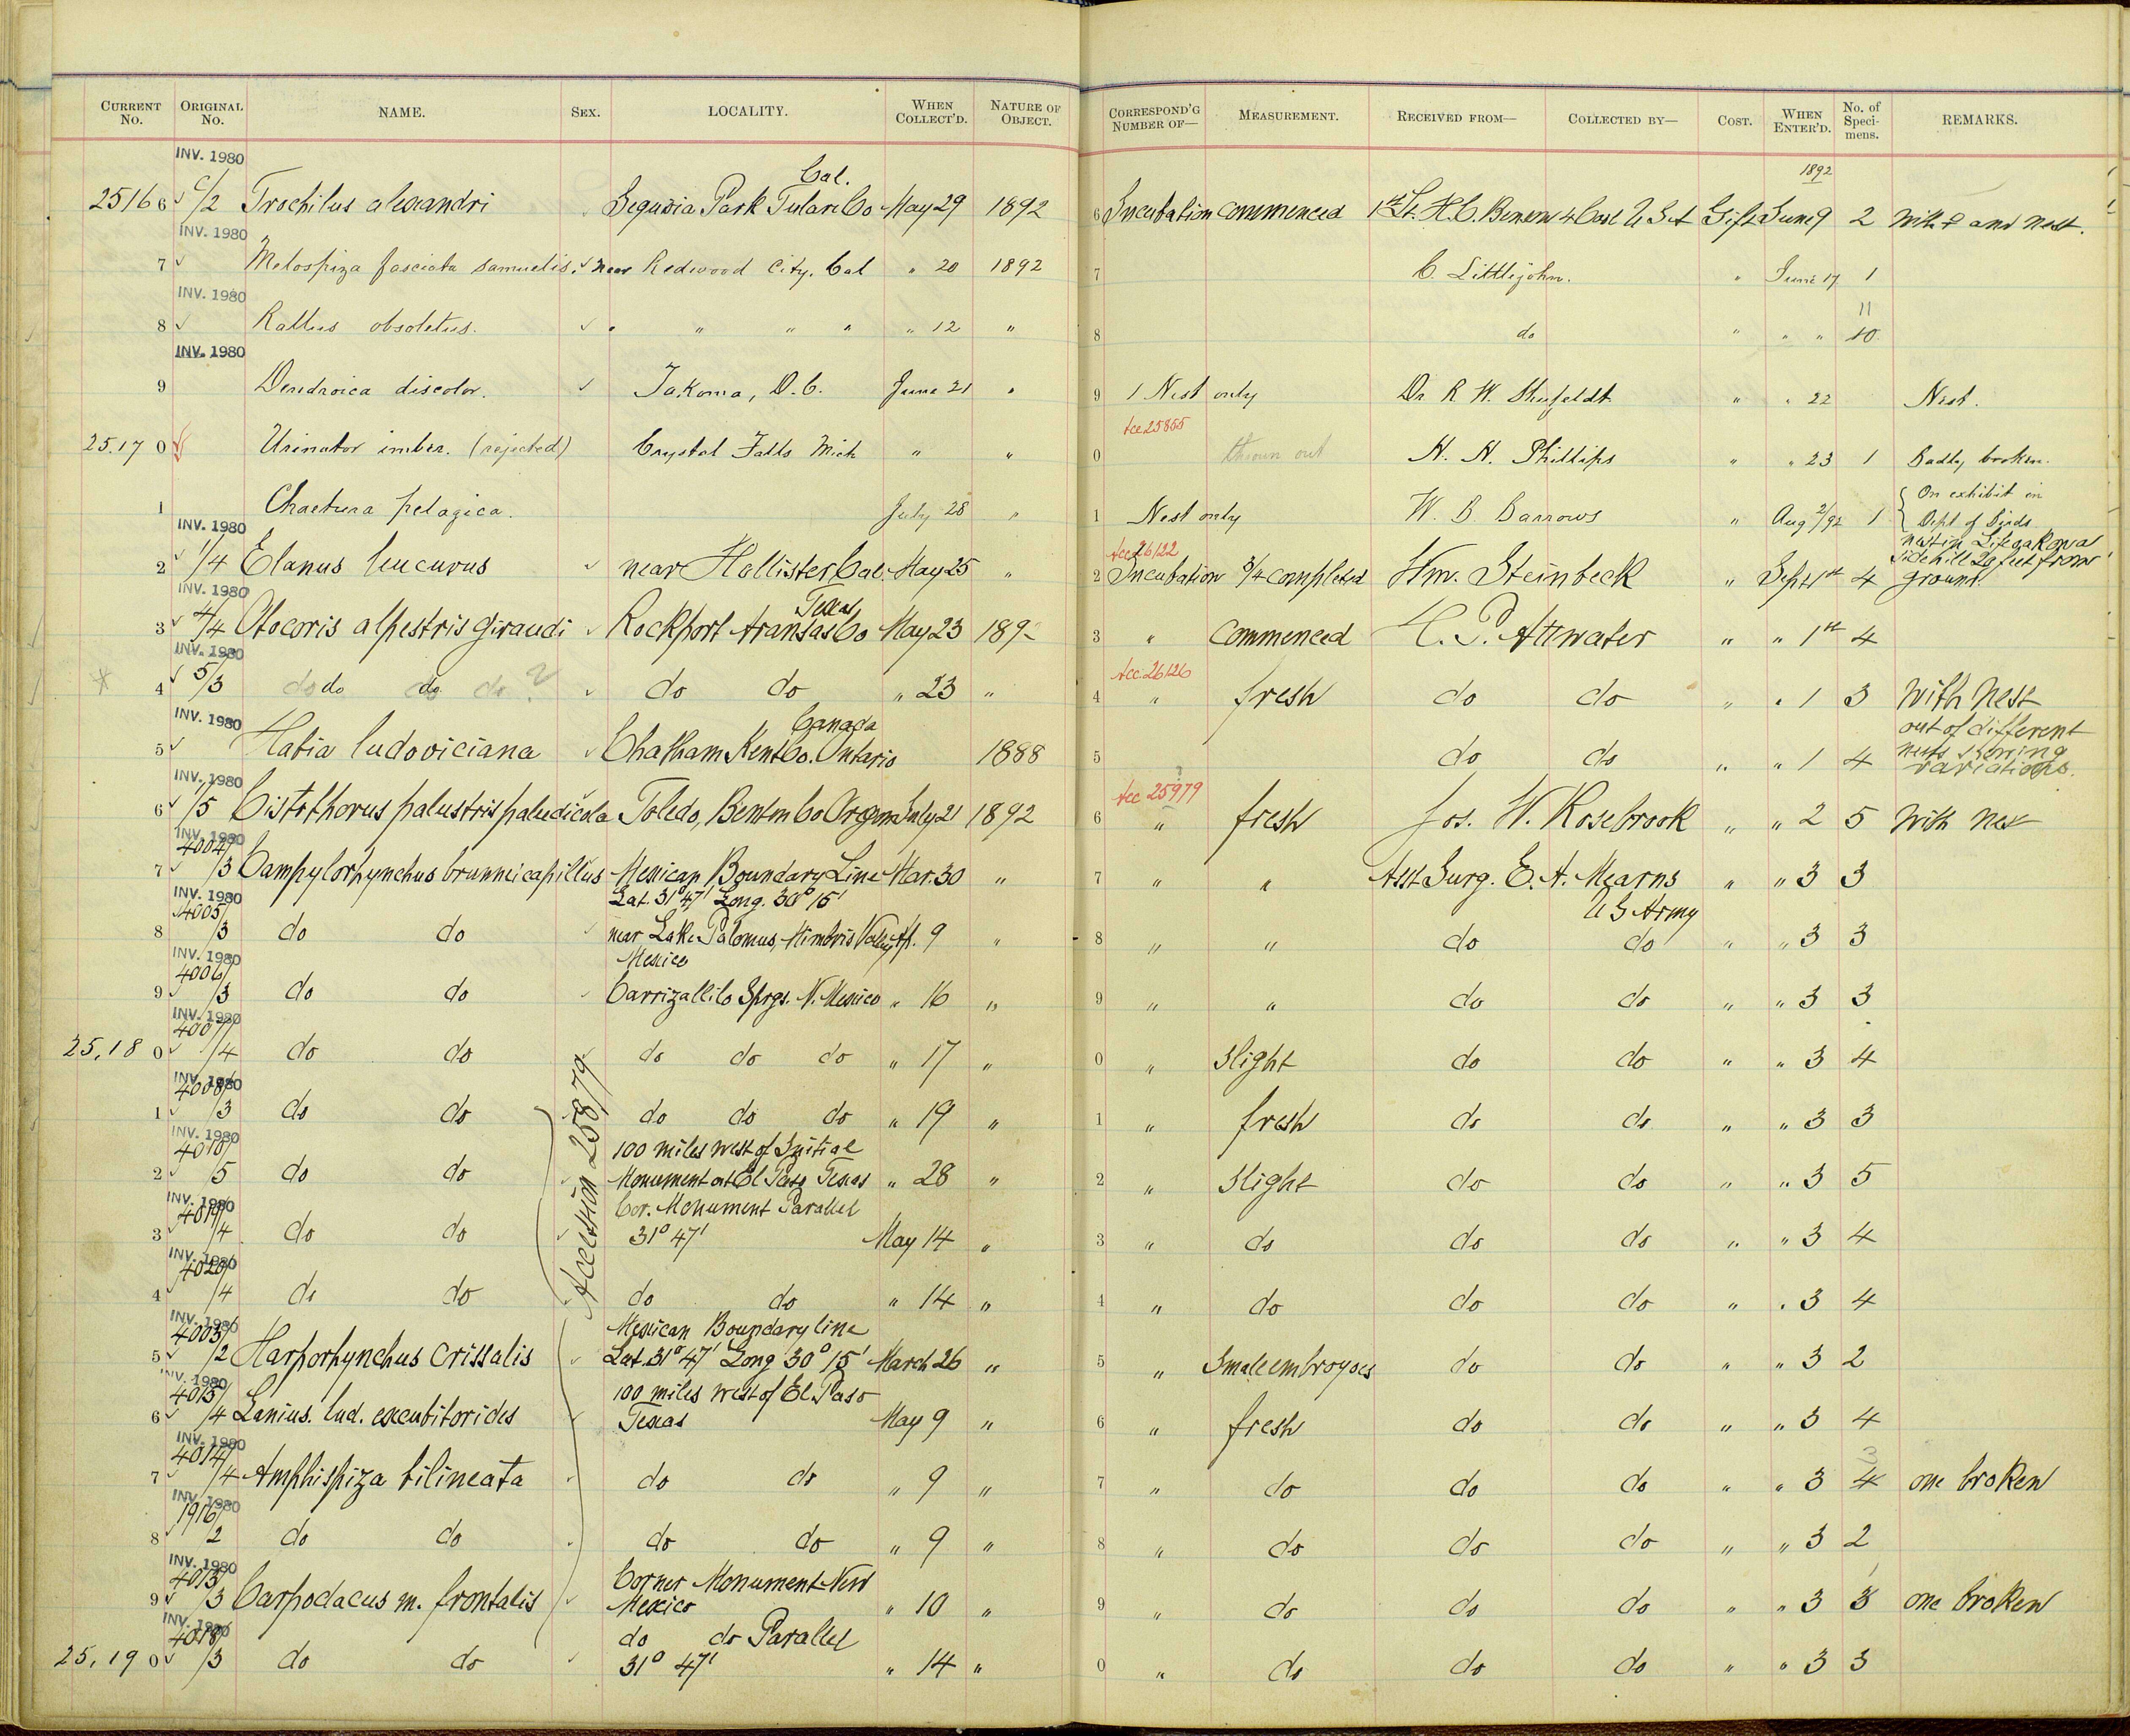 CURRENT No. ORIGINAL No. NAME. SEX. LOCALITY. WHEN COLLECT'D. NATURE OF OBJECT. CORRESPOND'G NUMBER OF— MEASUREMENT. RECEIVED FROM— COLLECTED BY— COST. WHEN ENTER'D. No. of Specimens. REMARKS.
INV. 1980
Cal. 1892
2516 6 c/2 Trochilus alexandri Sequoia Park Tulare Co May 29 1892 6 Incubation Commenced 1st Lt. H.C. Benson 4 Cav U S A Gift June 9 2 With ♀ and nest.
INV. 1980
7 Melospiza fasciata samuelis. near Redwood City. Cal " 20 1892 7 C. Littlejohn. " June 17 1
INV. 1980
11
8 Rallus obsoletus. " " " " " 12 " 8 do " " " 10
INV. 1980
9 Dendroica discolor. Takoma, D.C. June 21 " 9 1 Nest only Dr R W. Shufeldt " " 22 Nest.
Acc 25855
25.17 0 Urinator imber. (rejected) Crystal Falls Mich " " 0 thrown out N. N. Phillips " " 23 1 Badly broken.
1 Chaetura pelagica. July 28 " 1 Nest only W. B. Barrows " Aug 2/92 1 On exhibit in Dept of Birds
INV. 1980
Acc 26122
2 1/4 Elanus leucurus near Hollister Cal. May 25 " 2 Incubation 3/4 completed Wm. Steinbeck " Sept 1st 4 nest in Life oak on a side hill 20 feet from ground.
INV. 1980
Texas
3 4/4 Otocoris alpestris giraudi Rockport Aransas Co May 23 189- 3 " Commenced H. P. Attwater " " 1st 4
INV. 1980
Acc. 26126
* 4 5/3 do do do ? do do " 23 " 4 " fresh do do " " 1 3 With Nest
INV. 1980
Canada
5 Habia ludoviciana Chatham Kent Co. Ontario 1888 5 do do " " 1 4 out of different nests showing variations.
INV. 1980
Acc 25979
6 1/5 Cistothorus palustris paludicola Toledo, Benton Co Oregon July 21 1892 6 " fresh Jos. W. Rosebrook " " 2 5 With Nest
INV. 1980
7 4004/3 Campylorhynchus brunneicapillus Mexican Boundary Line Mar. 30 " 7 " " Asst Surg. E. A. Mearns " " 3 3
Lat. 31° 47' Long. 30° 15' U S Army
INV. 1980
8 4005/3 do do near Lake Palomus, Mimbris Valley Ap. 9 " 8 " " do do " " 3 3
Mexico
INV. 1980
9 4006/3 do do Carrizallilo Sprgs. N. Mexico " 16 " 9 " " do do " " 3 3
INV. 1980
25,18 0 4007/4 do do do do do " 17 " 0 " Slight do do " " 3 4
INV. 1980
1 4008/3 do do do do do " 19 " 1 " fresh do do " " 3 3
Accession 25879
INV. 1980
100 miles west of Initial
2 4010/5 do do Monument at El Paso Texas " 28 " 2 " Slight do do " " 3 5
INV. 1980
Cor. Monument Parallel
3 4019/4 do do 31° 47' May 14 " 3 " do do do " " 3 4
INV. 1980
4 4020/4 do do do do " 14 " 4 " do do do " " 3 4
INV. 1980
Mexican Boundary line
5 4003/2 Harporhynchus crissalis Lat. 31° 47' Long 30° 15' March 26 " 5 " Small embroyoes do do " " 3 2
INV. 1980
100 miles west of El Paso
6 4015/4 Lanius. lud. excubitorides Texas May 9 " 6 " fresh do do " " 3 4
INV. 1980
3
7 4014/4 Amphispiza bilineata do do " 9 " 7 " do do do " " 3 4 one broken
INV. 1980
8 1916/2 do do do do " 9 " 8 " do do do " " 3 2
INV. 1980
Corner Monument New
9 4013/3 Carpodacus m. frontalis Mexico " 10 " 9 " do do do " " 3 3 one broken
INV. 1980
do do Parallel
25,19 0 4018/3 do do 31° 47' " 14 " 0 " do do do " " 3 3